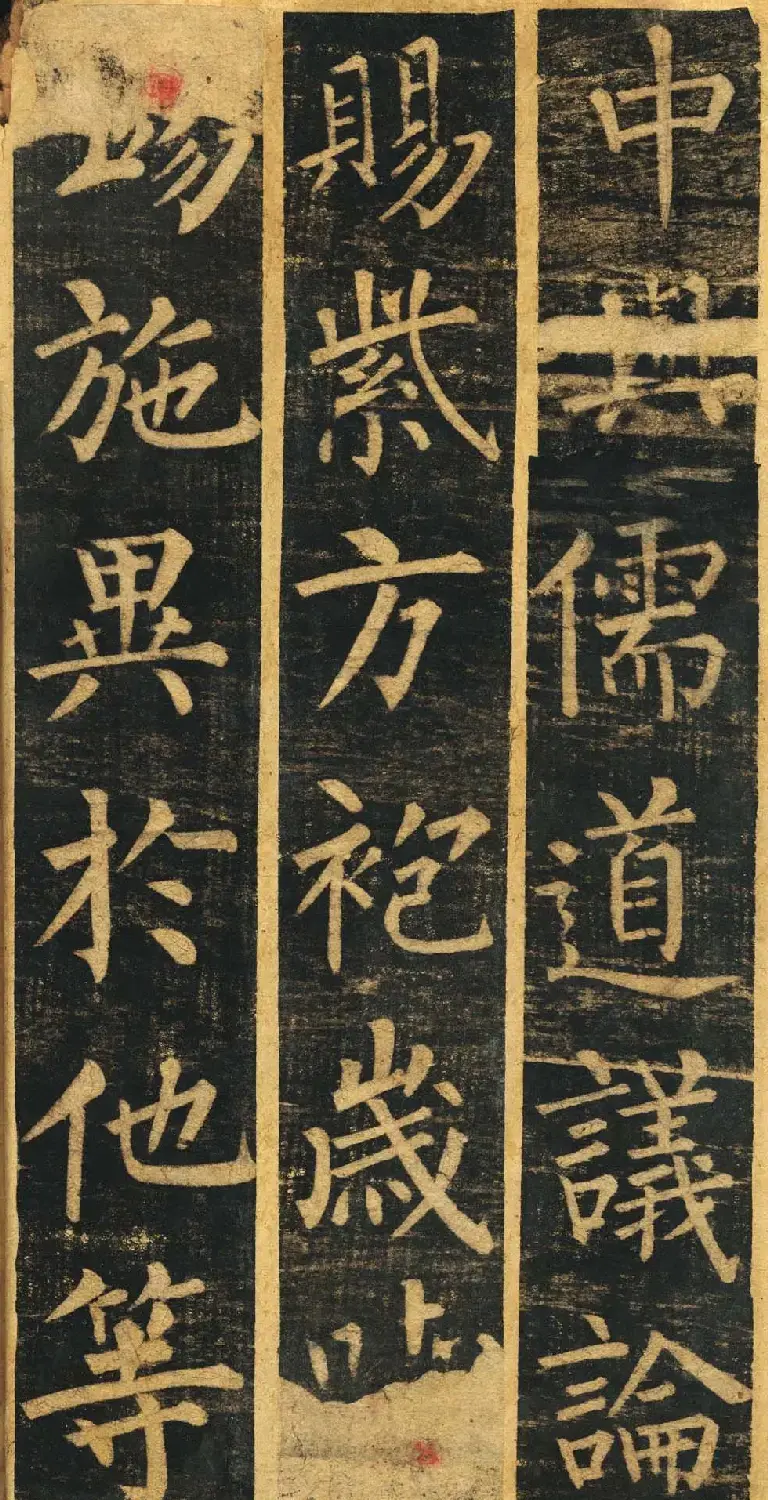 中與儒道議論
賜紫方袍歲
錫施異於他等